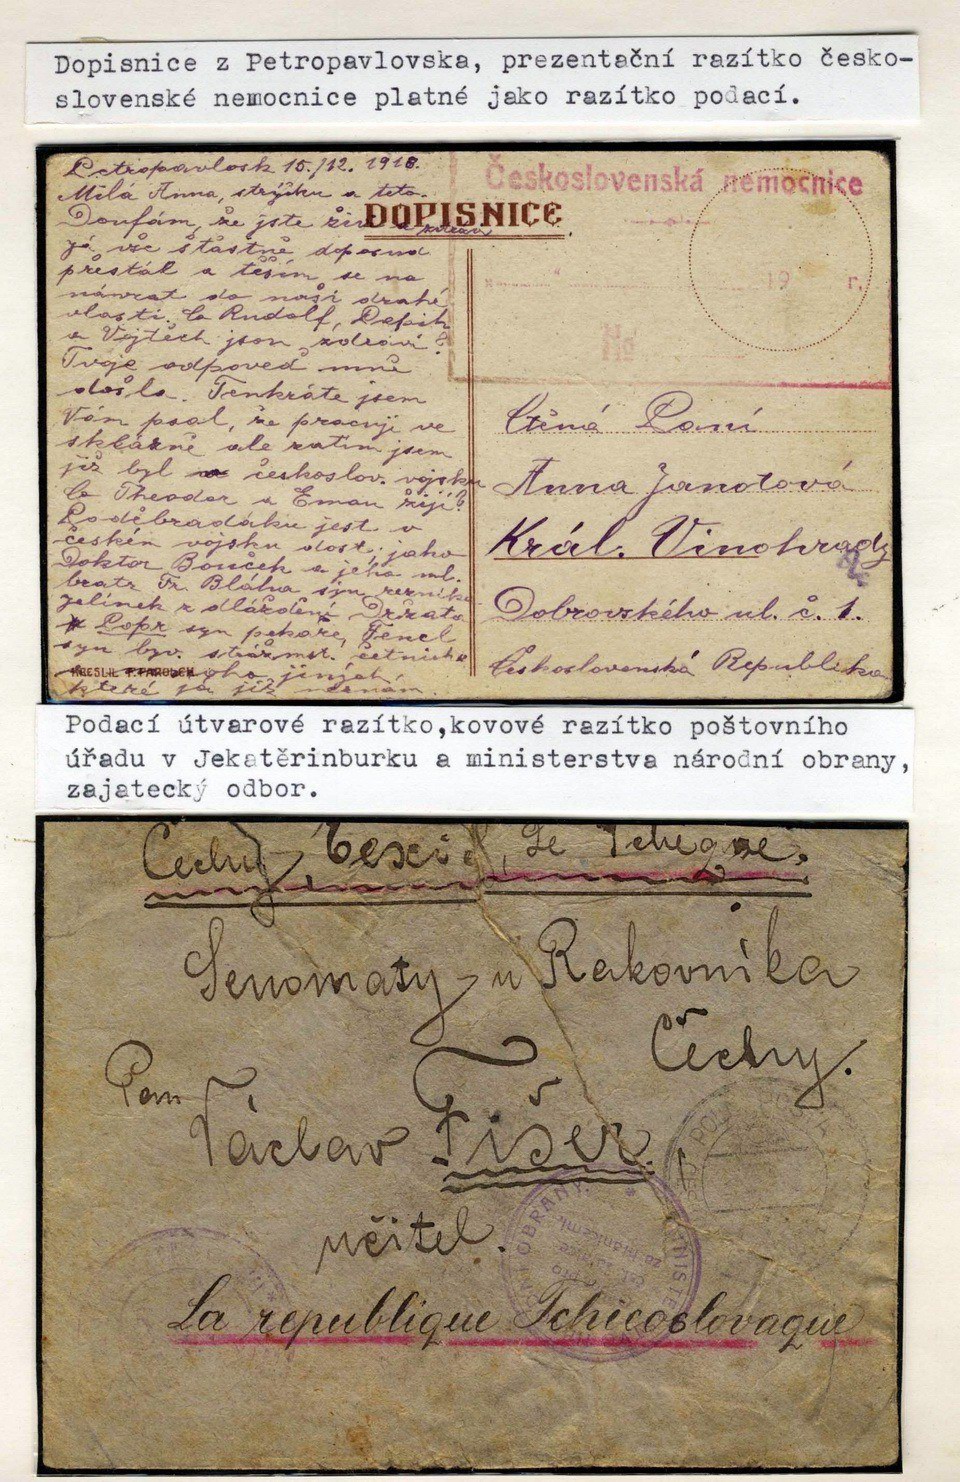 Dopisnice z Petropavlovska, prezentační razítko česko-
slovenské nemocnice platné jako razítko podací.
Petropavlosk 15./12. 1918.
Milá Anna, strýčku a teto.
Doufám, že jste živi a zdrávi
já vše šťastně doposud
přestál a těším se na
návrat do naší drahé
vlasti. Co Rudolf, Pepik
a Vojtěch jsou zdrávi?
Tvoje odpověď mně
došla. Tenkráte jsem
Vám psal, že pracuji ve
sklárně ale zatím jsem
již byl českoslov. vojsku
Co Theodor a Eman žijí?
Poděbradáku jest v
českém vojsku dost. jako
Doktor Bouček a jeho ml.
bratr Fr. Bláha syn řezníka
Jelínek z dláždění
Popr syn pekaře, Fencl
syn býv. strážmst. četnictva
mnoho jiných
které já již neznám.
KRESLIL
DOPISNICE
Československá nemocnice
19 r.
No
Ctěná Paní
Anna Janotová
Král. Vinohrady
Dobrovského ul. č. 1.
Československá Republika
Podací útvarové razítko,kovové razítko poštovního
úřadu v Jekatěrinburku a ministerstva národní obrany,
zajatecký odbor.
Čechy, Чехiя, Le Tcheque.
Senomaty u Rakovníka
Čechy.
Pan
Václav Fišer
učitel.
POLNÍ POŠTA
OBRANY
MINISTE
La republique Tchecoslovaque